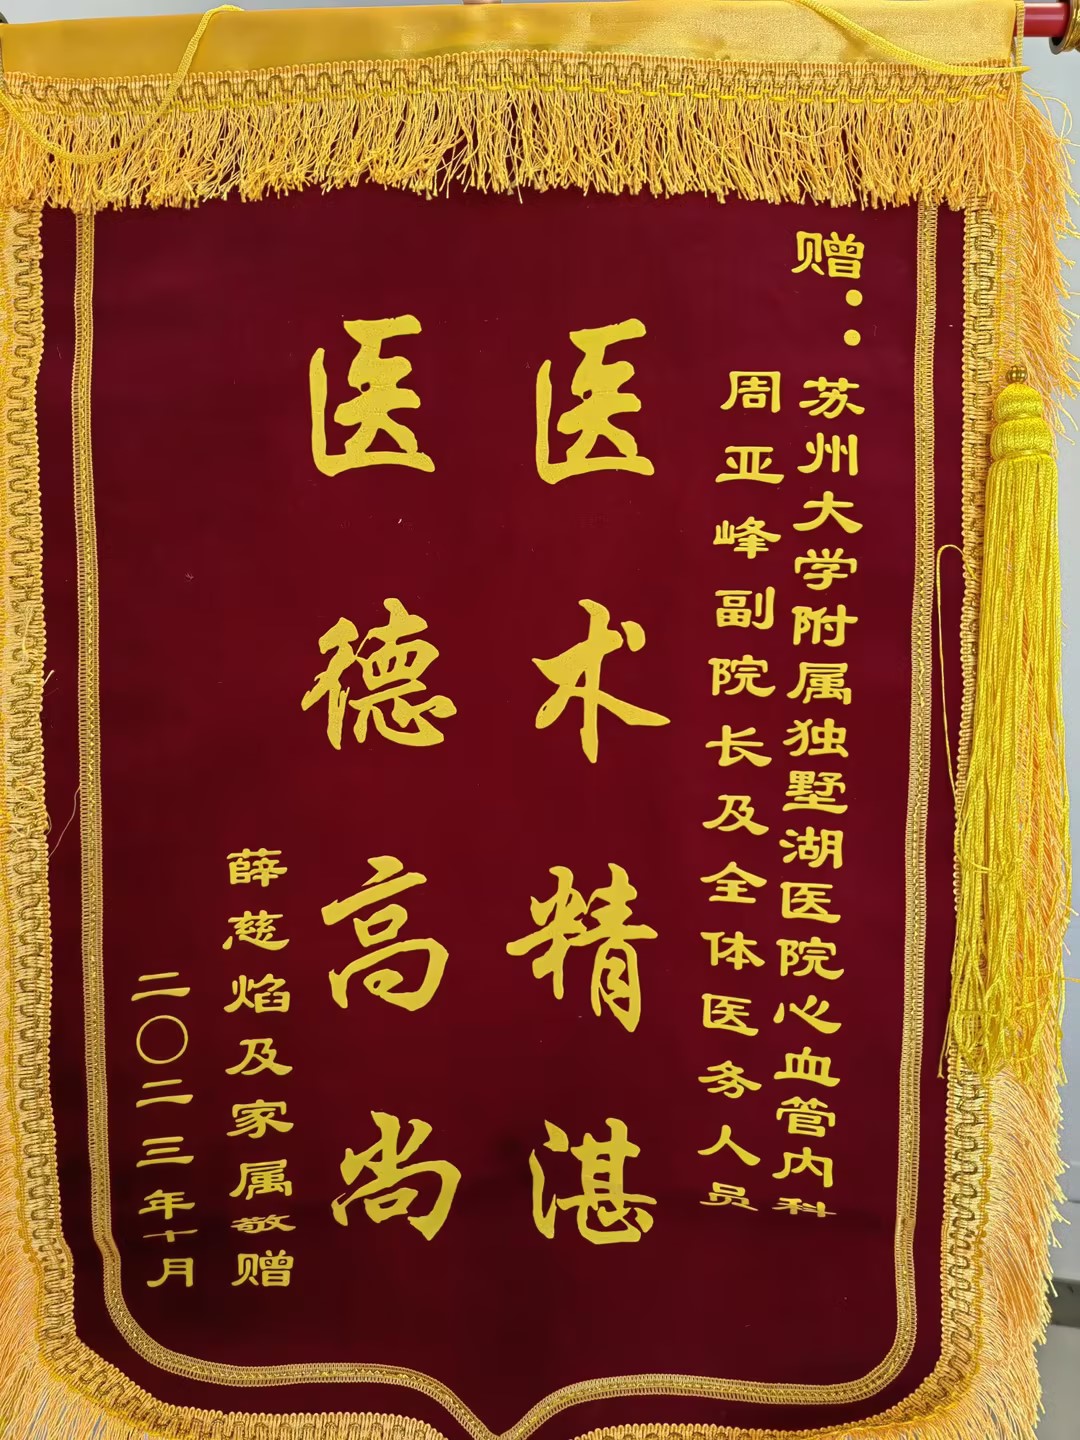 赠：苏州大学附属独墅湖医院心血管内科
周亚峰副院长及全体医务人员
医术精湛
医德高尚
薛慈焰及家属敬赠
二〇二三年十月